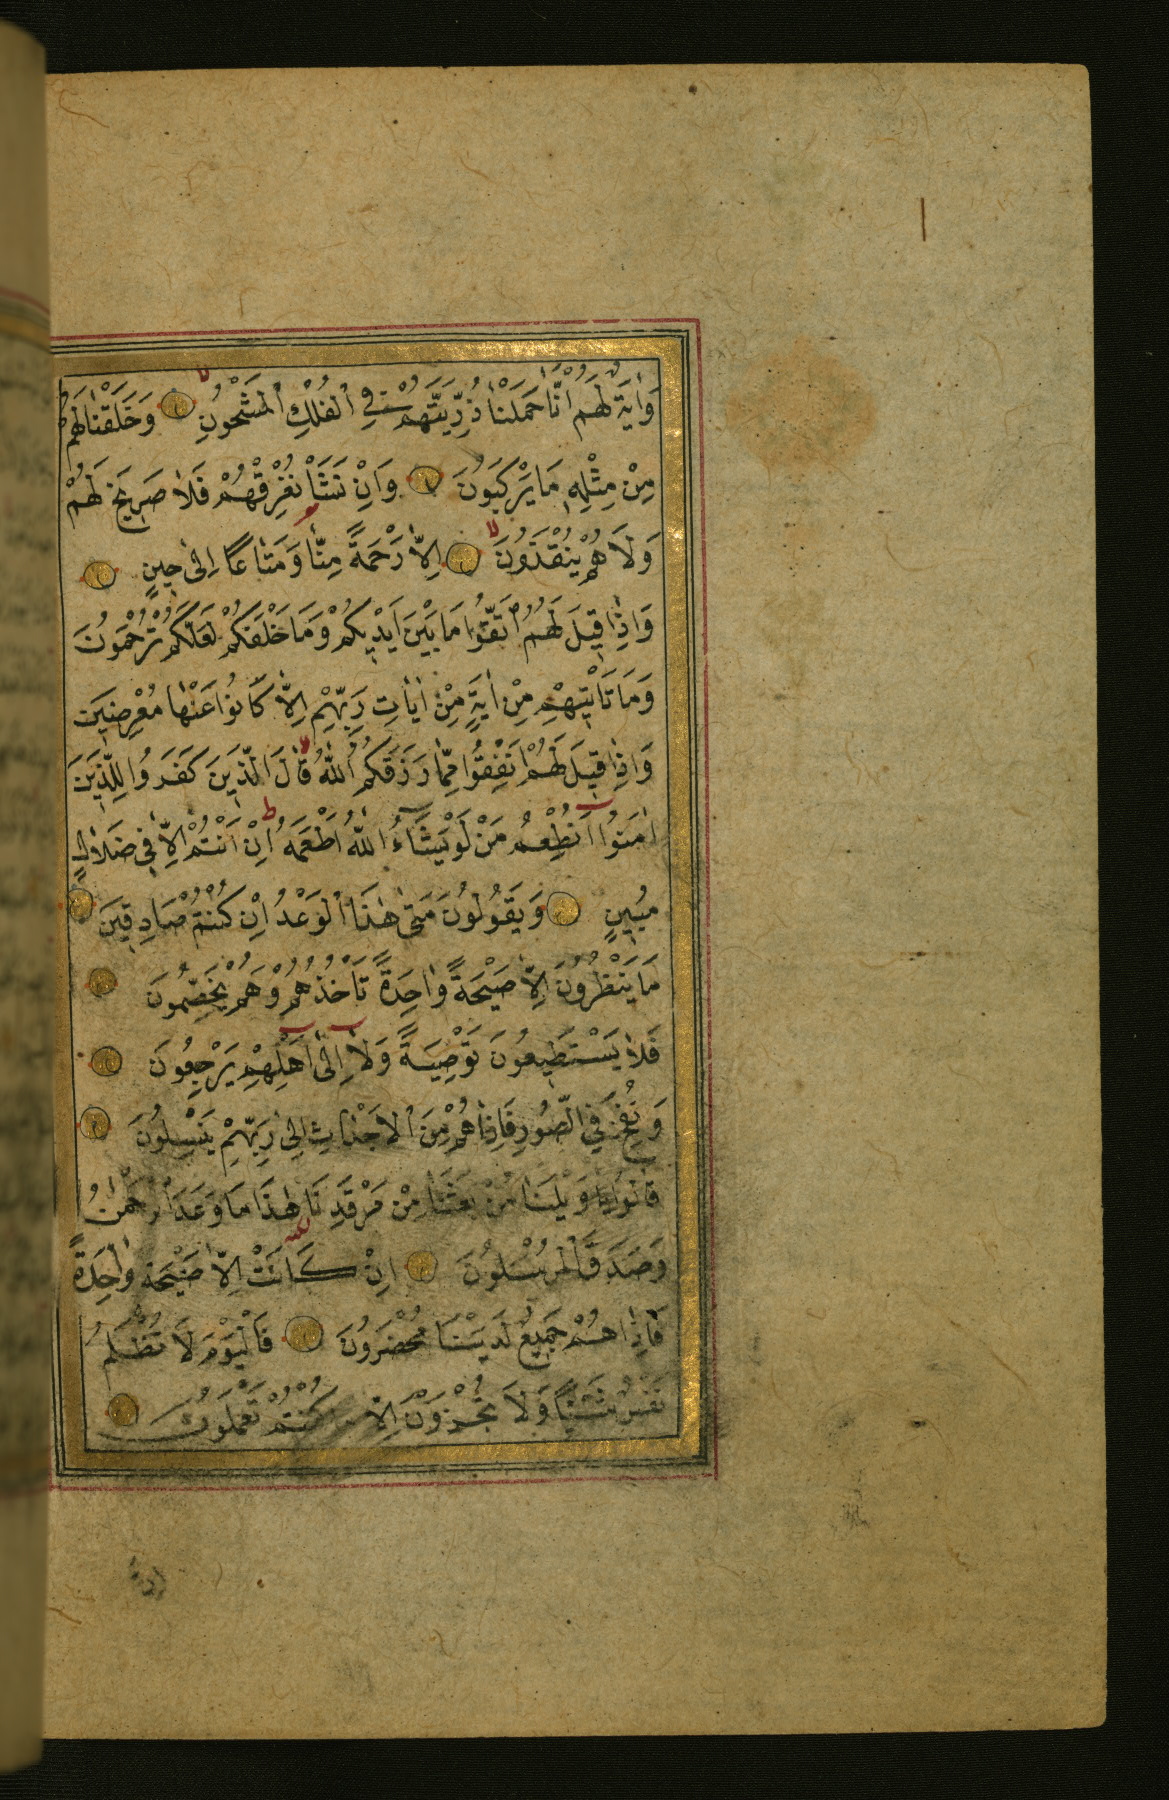 وَاٰيَةٌ لَهُمْ اَنَّا حَمَلْنَا ذُرِّيَّتَهُمْ فِي الْفُلْكِ الْمَشْحُونِ وَخَلَقْنَا لَهُمْ
مِنْ مِثْلِهِ مَا يَرْكَبُونَ وَاِنْ نَشَأْ نُغْرِقْهُمْ فَلَا صَرِيخَ لَهُمْ
وَلَا هُمْ يُنْقَذُونَ اِلَّا رَحْمَةً مِنَّا وَمَتَاعًا اِلٰى حِينٍ
وَاِذَا قِيلَ لَهُمُ اتَّقُوا مَا بَيْنَ اَيْدِيكُمْ وَمَا خَلْفَكُمْ لَعَلَّكُمْ تُرْحَمُونَ
وَمَا تَأْتِيهِمْ مِنْ اٰيَةٍ مِنْ اٰيَاتِ رَبِّهِمْ اِلَّا كَانُوا عَنْهَا مُعْرِضِينَ
وَاِذَا قِيلَ لَهُمْ اَنْفِقُوا مِمَّا رَزَقَكُمُ اللّٰهُ قَالَ الَّذِينَ كَفَرُوا لِلَّذِينَ
اٰمَنُوا اَنُطْعِمُ مَنْ لَوْ يَشَاءُ اللّٰهُ اَطْعَمَهُ اِنْ اَنْتُمْ اِلَّا فِي ضَلَالٍ
مُبِينٍ وَيَقُولُونَ مَتٰى هٰذَا الْوَعْدُ اِنْ كُنْتُمْ صَادِقِينَ
مَا يَنْظُرُونَ اِلَّا صَيْحَةً وَاحِدَةً تَأْخُذُهُمْ وَهُمْ يَخِصِّمُونَ
فَلَا يَسْتَطِيعُونَ تَوْصِيَةً وَلَا اِلٰى اَهْلِهِمْ يَرْجِعُونَ
وَنُفِخَ فِي الصُّورِ فَاِذَا هُمْ مِنَ الْاَجْدَاثِ اِلٰى رَبِّهِمْ يَنْسِلُونَ
قَالُوا يَا وَيْلَنَا مَنْ بَعَثَنَا مِنْ مَرْقَدِنَا هٰذَا مَا وَعَدَ الرَّحْمٰنُ
وَصَدَقَ الْمُرْسَلُونَ اِنْ كَانَتْ اِلَّا صَيْحَةً وَاحِدَةً
فَاِذَا هُمْ جَمِيعٌ لَدَيْنَا مُحْضَرُونَ فَالْيَوْمَ لَا تُظْلَمُ
نَفْسٌ شَيْئًا وَلَا تُجْزَوْنَ اِلَّا مَا كُنْتُمْ تَعْمَلُونَ